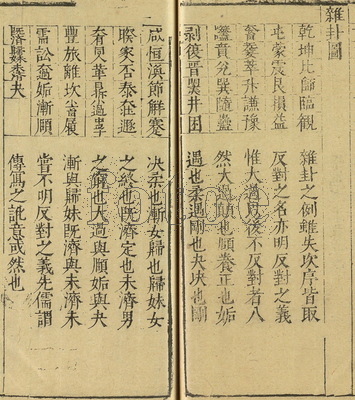 雜卦圖
乾坤比師臨觀
屯蒙震艮損益
萃升謙豫
噬賁兌巽隨蠱
剝復晉夷井困
咸恒渙節解蹇
睽家否泰壯遯
有同革鼎過孚
豐旅離坎畜履
需訟過姤漸頤
濟歸濟夬
雜卦之例雖失次序皆取
反對之名亦明反對之義
惟大過以後不反對者八
然大過顛也頤養正也姤
遇也柔遇剛也夬決也剛
決柔也漸女歸也歸妹女
之終也既濟定也未濟男
之窮也大過與頤姤與夬
漸與歸妹既濟與未濟未
嘗不明反對之義先儒謂
傳寫之訛意或然也